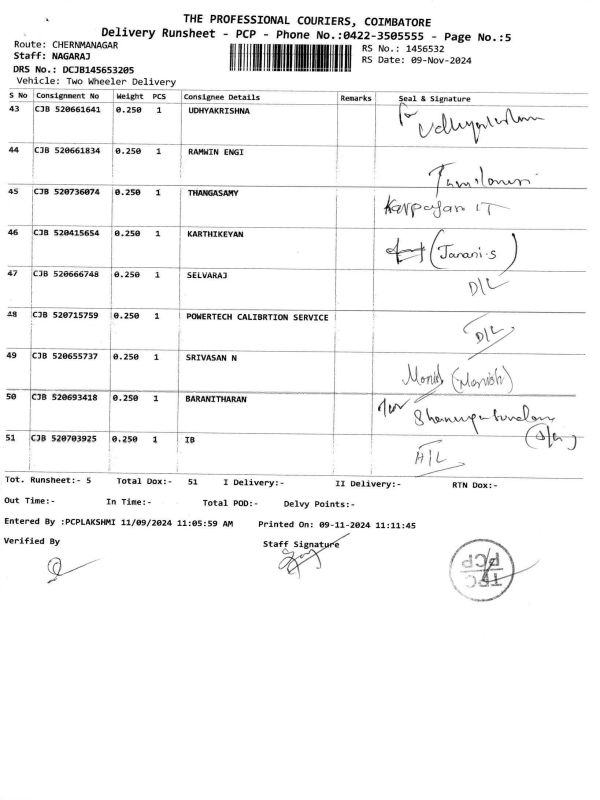 THE PROFESSIONAL COURIERS, COIMBATORE
Delivery Runsheet - PCP - Phone No.:0422-3505555 - Page No.:5
Route: CHERNMANAGAR
Staff: NAGARAJ
DRS No.: DCJB145653205
Vehicle: Two Wheeler Delivery
RS No.: 1456532
RS Date: 09-Nov-2024
S No Consignment No Weight PCS Consignee Details Remarks Seal & Signature
43 CJB 520661641 0.250 1 UDHYAKRISHNA
44 CJB 520661834 0.250 1 RAMWIN ENGI
45 CJB 520736074 0.250 1 THANGASAMY
46 CJB 520415654 0.250 1 KARTHIKEYAN (Janani.S)
47 CJB 520666748 0.250 1 SELVARAJ D/L
48 CJB 520715759 0.250 1 POWERTECH CALIBRTION SERVICE D/L
49 CJB 520655737 0.250 1 SRIVASAN N (Manish)
50 CJB 520693418 0.250 1 BARANITHARAN
51 CJB 520703925 0.250 1 IB A/L
Tot. Runsheet:- 5 Total Dox:- 51 I Delivery:- II Delivery:- RTN Dox:-
Out Time:- In Time:- Total POD:- Delvy Points:-
Entered By :PCPLAKSHMI 11/09/2024 11:05:59 AM Printed On: 09-11-2024 11:11:45
Verified By Staff Signature
TPC
PCP